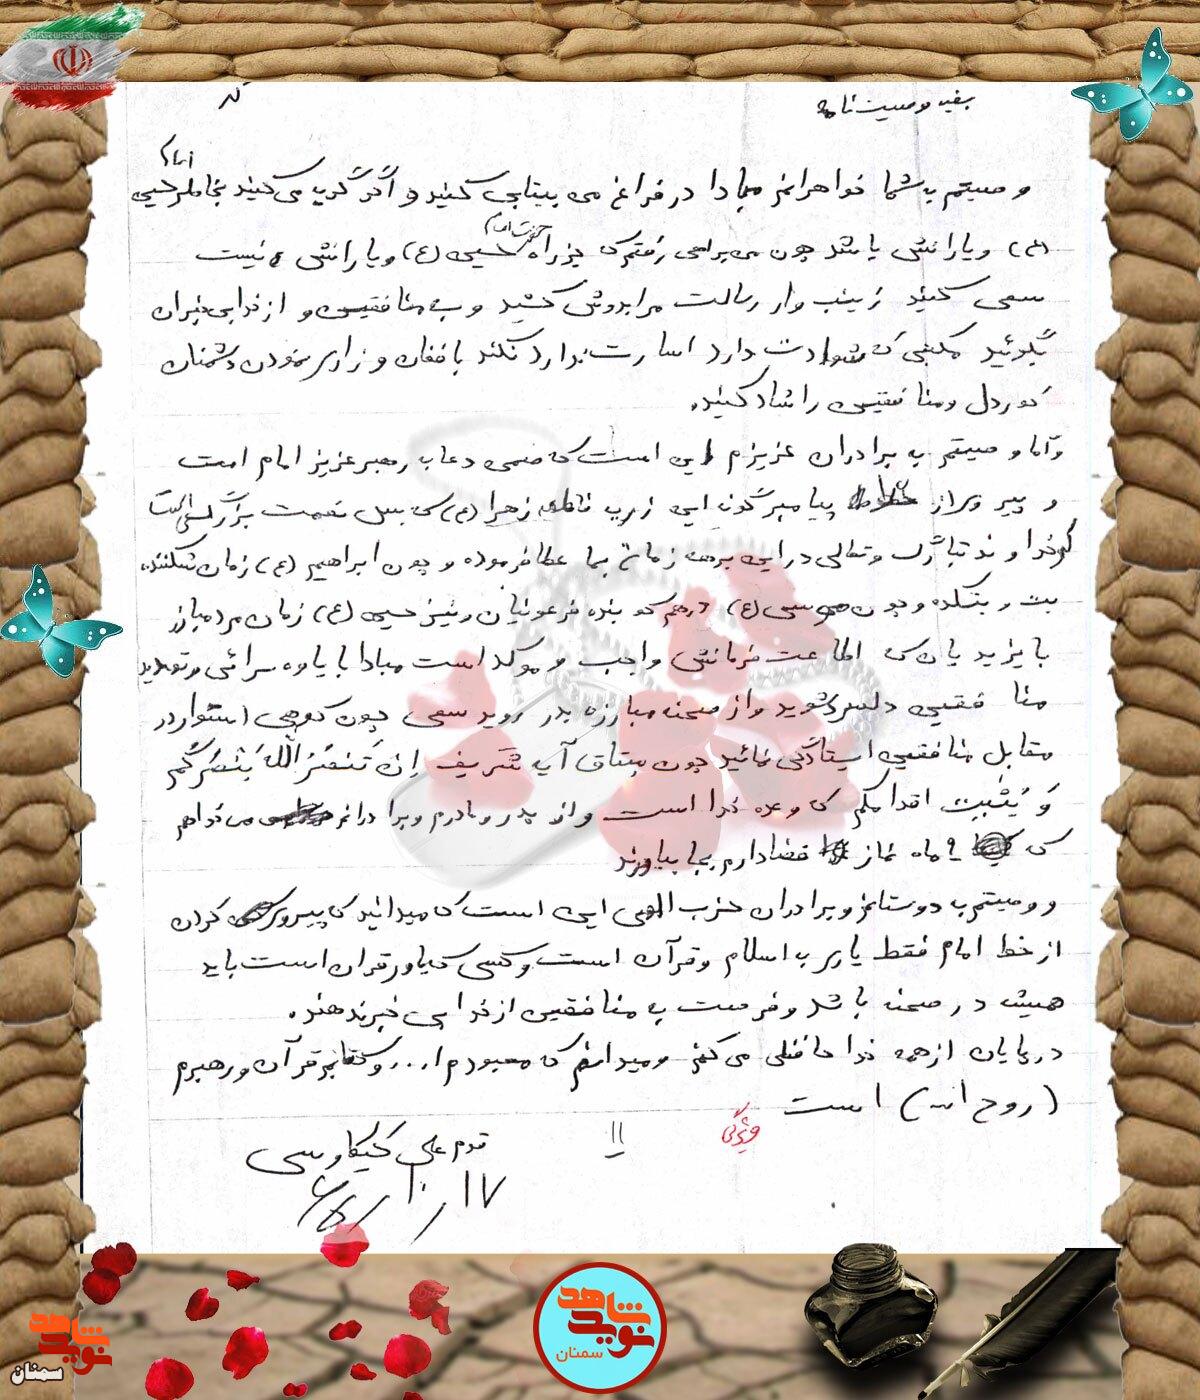 بقیه وصیت نامه
وصیتم به شما خواهرانم مبادا در فراغم بی بیتابی کنید و اگر گریه می کنید بخاطر امام حسین
(ع) و یارانش باشد چون من براهی رفتم که جز راه حضرت امام حسین (ع) و یارانش نیست
سعی کنید زینب وار رسالت مرا بدوش کشید و به منافقین و از خدا بی خبران
بگوئید مکتبی که شهادت دارد اسارت ندارد نکند با فغان و زاری نمودن دشمنان
کوردل و منافقین را شاد کنید.
و اما وصیتم به برادران عزیزم این است که ضمن دعا به رهبر عزیز امام است
و پیروی از پیامبرگونه این ذریه فاطمه زهرا (س) که بس نعمت بزرگی است
که خداوند تبارک و تعالی در این برهه زمان بما عطا فرموده و چون ابراهیم (ع) زمان شکننده
بت و بتکده و چون موسی (ع) درهم کوبنده فرعونیان و نیز حسین (ع) زمان مرد مبارز
با یزیدیان که اطاعت فرمانش واجب و موکد است مبادا با یاوه سرائی و تهدید
منافقین دلسرد شوید و از صحنه مبارزه بدر روید سعی چون کوهی استوار در
مقابل منافقین ایستادگی نمائید چون میثاق آیه شریف اِن تَنصُرُ اللهَ یَنصُرکُم
وَ یُثَبِت اقدامکم که وعده خدا است و از پدر و مادرم و برادرانم می خواهم
که ۹ ماه نماز قضا دارم بجا بیاورند
و وصیتم به دوستانم و برادران حزب الهی این است که میدانید که پیروی کردن
از خط امام فقط یاری به اسلام و قرآن است و کسی که یاور قرآن است باید
همیشه در صحنه باشد و فرصت به منافقین از خدا بی خبر ندهند.
در پایان از همه خدا حافظی می کنم و میدانم که معبودم ا... و کتابم قرآن و رهبرم
(روح اله) است
ویژگی
11
قدم علی کیکاوسی
۱۷/۱۰/۶۵
شاهد
نوید
سمنان
شاهد
نوید
سمنان